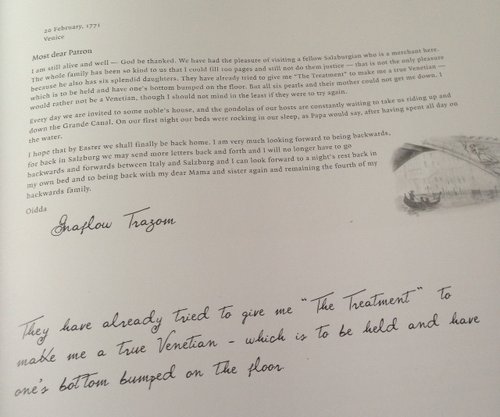 20 February, 1771
Venice
Most dear Patron
I am still alive and well — God be thanked. We have had the pleasure of visiting a fellow Salzburgian who is a merchant here.
The whole family has been so kind to us that I could fill 100 pages and still not do them justice — that is not the only pleasure
because he also has six splendid daughters. They have already tried to give me "The Treatment" to make me a true Venetian —
which is to be held and have one's bottom bumped on the floor. But all six pearls and their mother could not get me down. I
would rather not be a Venetian, though I should not mind in the least if they were to try again.
Every day we are invited to some noble's house, and the gondolas of our hosts are constantly waiting to take us riding up and
down the Grande Canal. On our first night our beds were rocking in our sleep, as Papa would say, after having spent all day on
the water.
I hope that by Easter we shall finally be back home. I am very much looking forward to being backwards,
for back in Salzburg we may send more letters back and forth and I will no longer have to go
backwards and forwards between Italy and Salzburg and I can look forward to a night's rest back in
my own bed and to being back with my dear Mama and sister again and remaining the fourth of my
backwards family.
Oidda
Gnaflow Trazom
They have already tried to give me "The Treatment" to
make me a true Venetian - which is to be held and have
one's bottom bumped on the floor